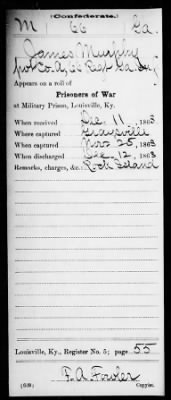 (Confederate.)
M 66 Ga.
James Murphy
Co. 66 Reg. Ga. Inf
Appears on a roll of
Prisoners of War
at Military Prison, Louisville, Ky.
When received Dec. 11, 1863
Where captured Graysville
When captured Nov. 25, 1863
When discharged Dec. 12, 1863
Remarks, charges, &c.: Rock Island
Louisville, Ky., Register No. 5; page 55
F. A. Fowler
Copyist.